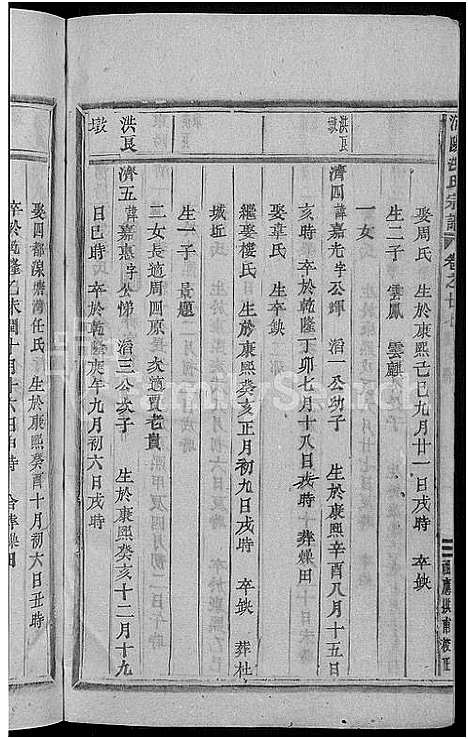 氏宗譜 卷之廿
娶周氏 生於康熙己巳九月廿一日戌時 卒缺
生二子 雲鳳 雲麒
一女氏
洪良 濟四諱嘉光字公輝 滔一公幼子 生於康熙辛酉八月十五日
亥時 卒於乾隆丁卯七月十八日戌時 葬燥田
娶章氏 生卒缺
繼娶樓氏 生於康熙癸亥正月初九日戌時 卒缺 葬杜
城近
生一子 景題
二女長適周四原 次適賈老貴
洪良 濟五諱嘉惠字公悌 滔三公次子 生於康熙癸亥十二月十九
墩 日巳時 卒於乾隆庚午九月初六日戌時
娶四都源塘灣任氏 生於康熙癸酉十月初六日丑時
卒於乾隆乙未閏十月十六日申時 合葬燥田